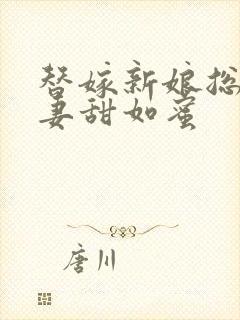 替嫁新娘总
妻甜如蜜
唐川